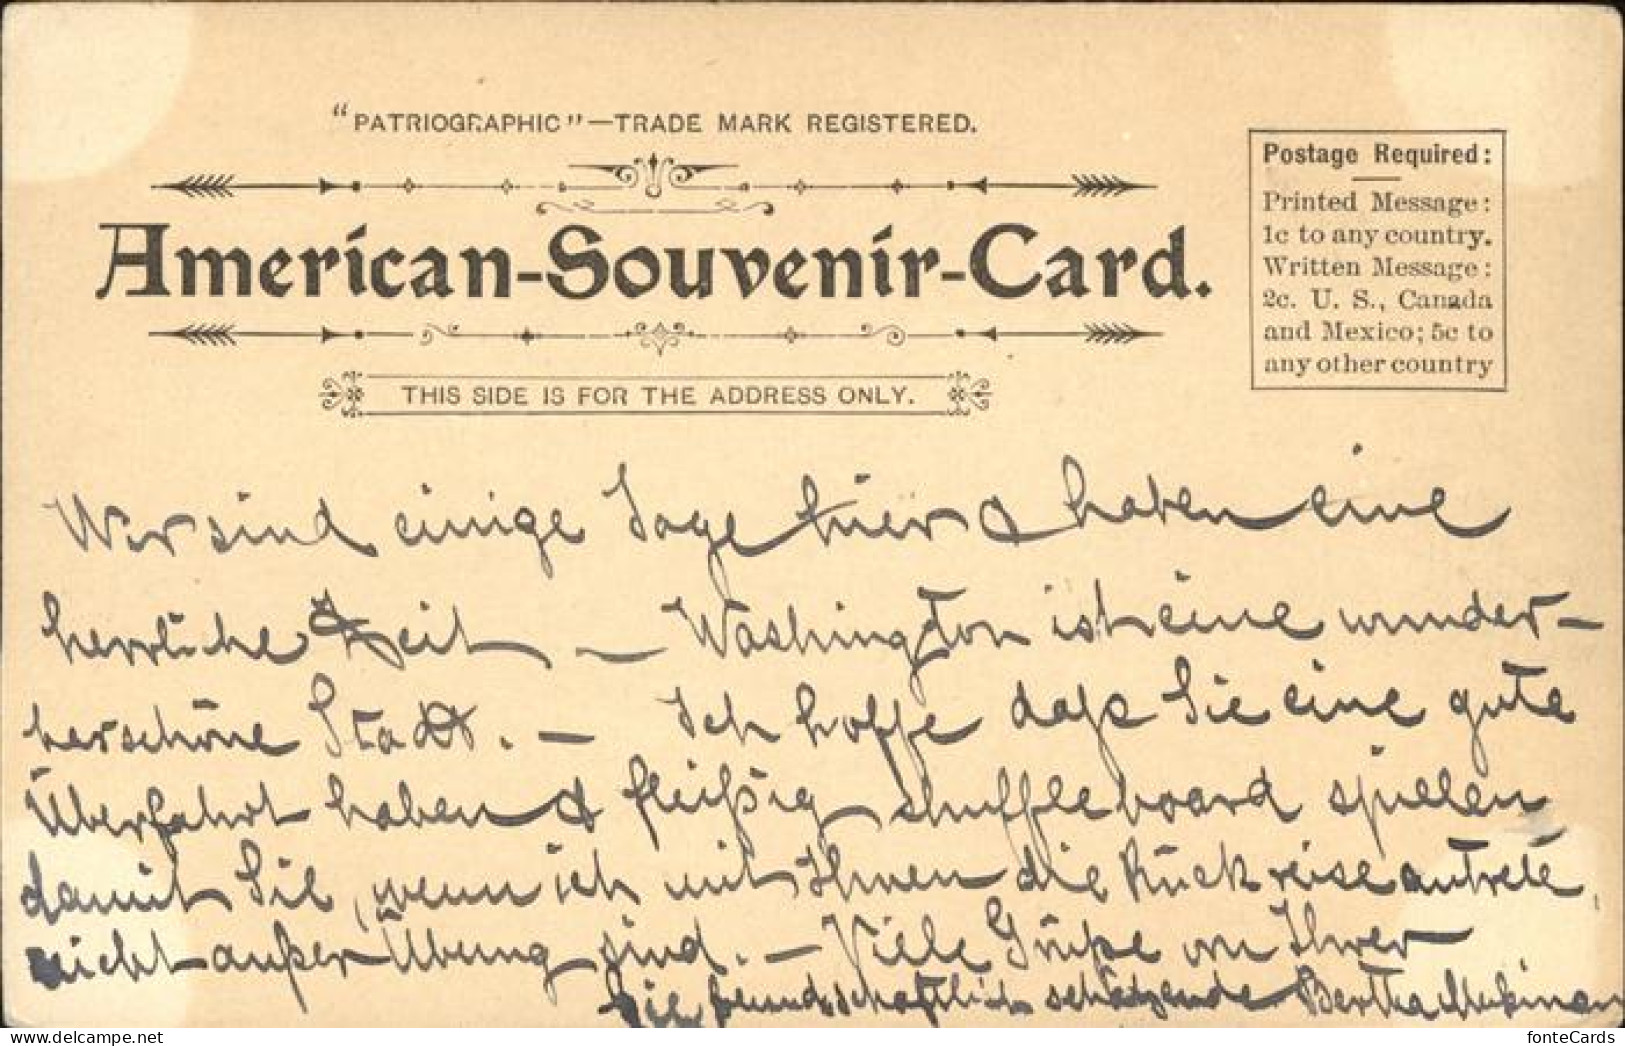 "PATRIOGRAPHIC"—TRADE MARK REGISTERED.
American-Souvenir-Card.
THIS SIDE IS FOR THE ADDRESS ONLY.
Postage Required:
Printed Message:
1c to any country.
Written Message:
2c. U. S., Canada
and Mexico; 5c to
any other country
Wir sind einige Tage hier & haben eine
herrliche Zeit — Washington ist eine wunder-
herschöne Stadt. — Ich hoffe daß Sie eine gute
Überfahrt haben & fleißig shuffleboard spielen
damit Sie, wenn ich mit Ihnen die Rückreise antrete,
nicht außer Übung sind. — Viele Grüße von Ihrer
Sie freundschaftlich schätzende Bertha
fonteCards